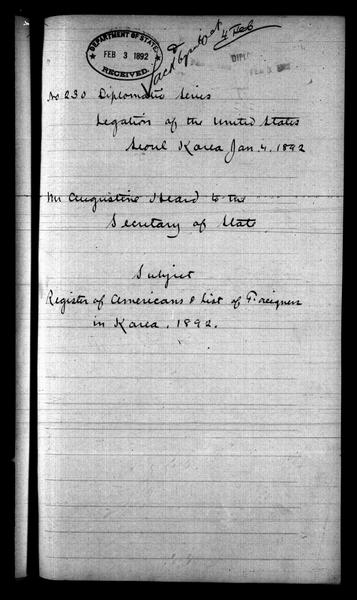 DEPARTMENT OF STATE
FEB 3 1892
RECEIVED.
4 Feb
No 230 Diplomatic Series
Legation of the United States
Seoul Korea Jan. 4. 1892
Mr Augustine Heard to the
Secretary of State
Subject
Register of Americans & List of Foreigners
in Korea. 1892.